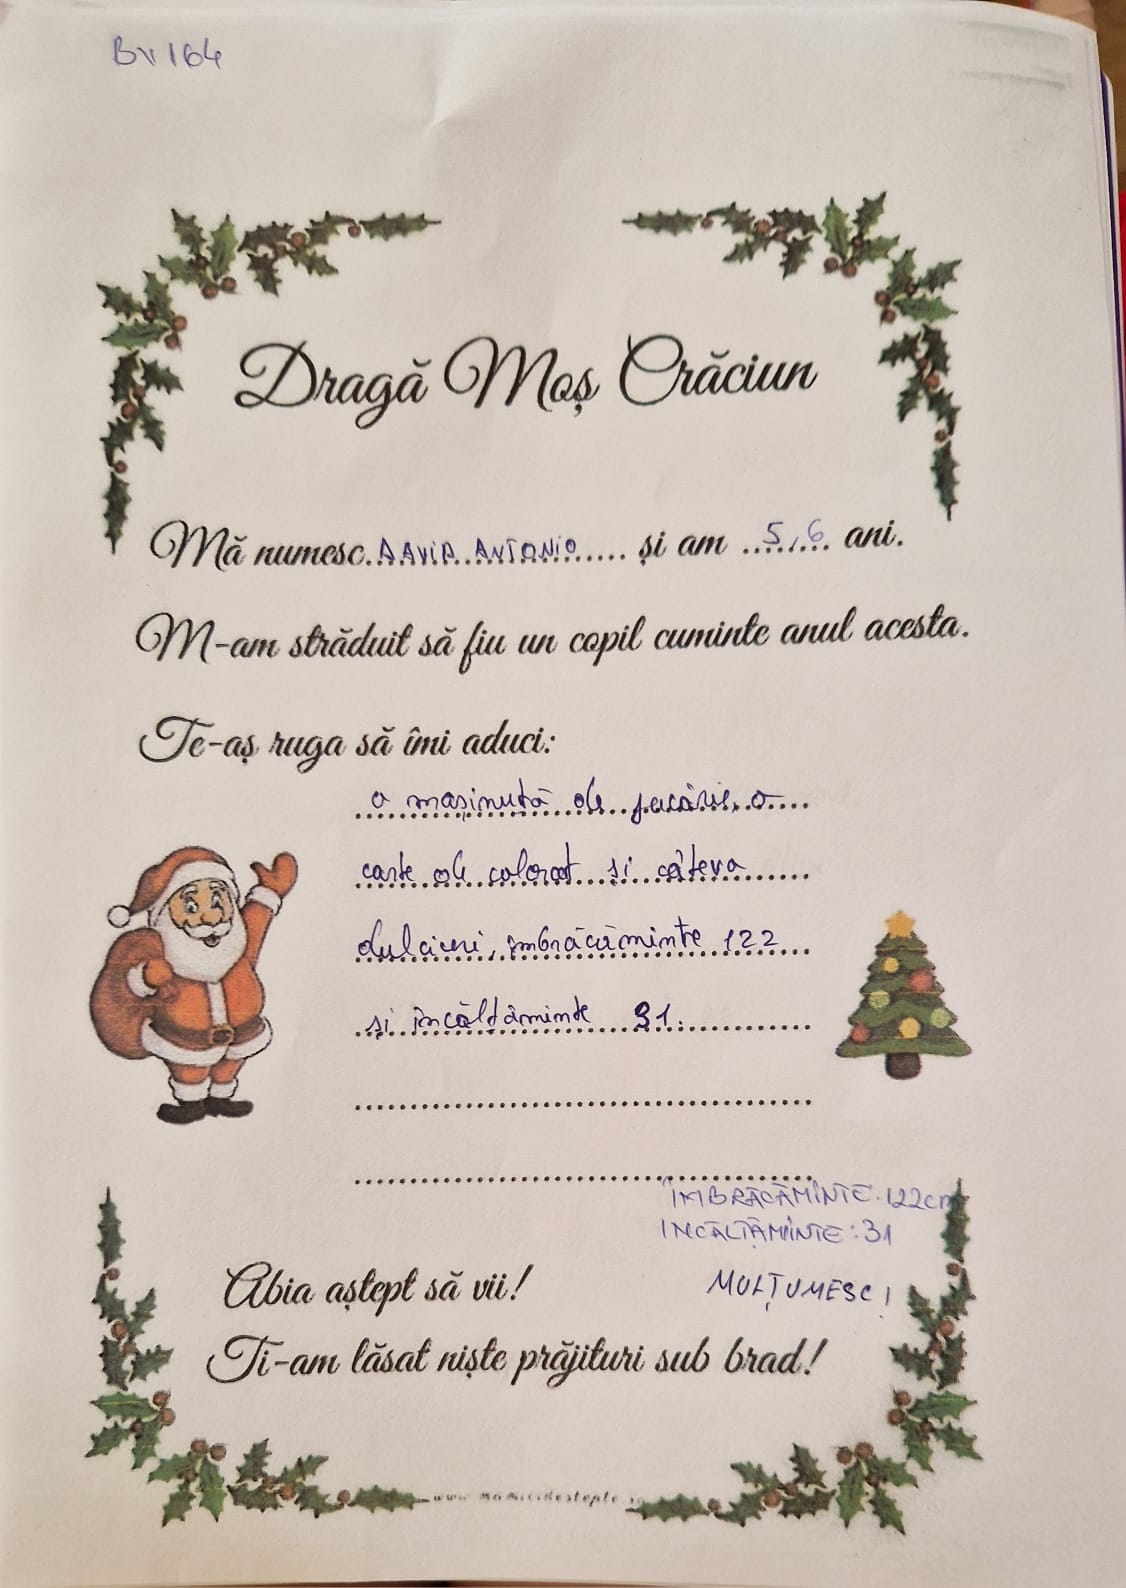 BV 164
Dragă Moș Crăciun
Mă numesc DAVID ANTONIO și am 5,6 ani.
M-am străduit să fiu un copil cuminte anul acesta.
Te-aș ruga să îmi aduci:
o mașinuță de jucărie, o
carte de colorat și câteva
dulciuri, îmbrăcăminte 122
și încălțăminte 31.
ÎMBRĂCĂMINTE: 122cm
INCĂLȚĂMINTE: 31
Abia aștept să vii!
MULȚUMESC!
Ti-am lăsat niște prăjituri sub brad!